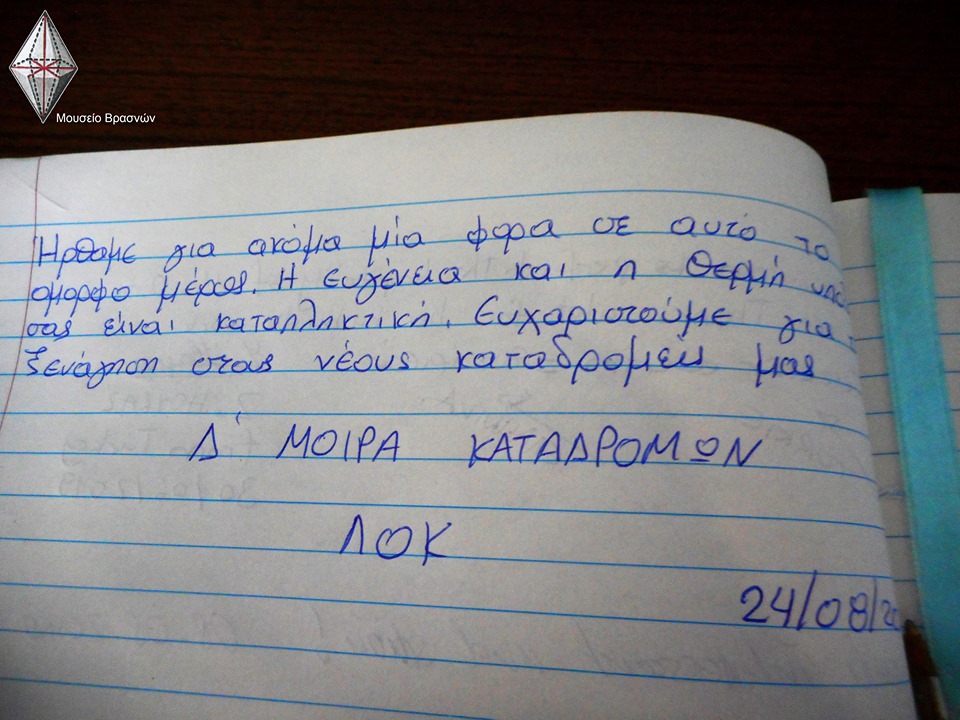 Μουσείο Βρασνών
Ήρθαμε για ακόμα μία φορα σε αυτό το
ομορφο μέρος. Η ευγένεια και η θερμή
σας είναι καταπληκτική. Ευχαριστούμε για
ξενάγηση στους νέους καταδρομείς μας
Δ' ΜΟΙΡΑ ΚΑΤΑΔΡΟΜΩΝ
ΛΟΚ
24/08/20